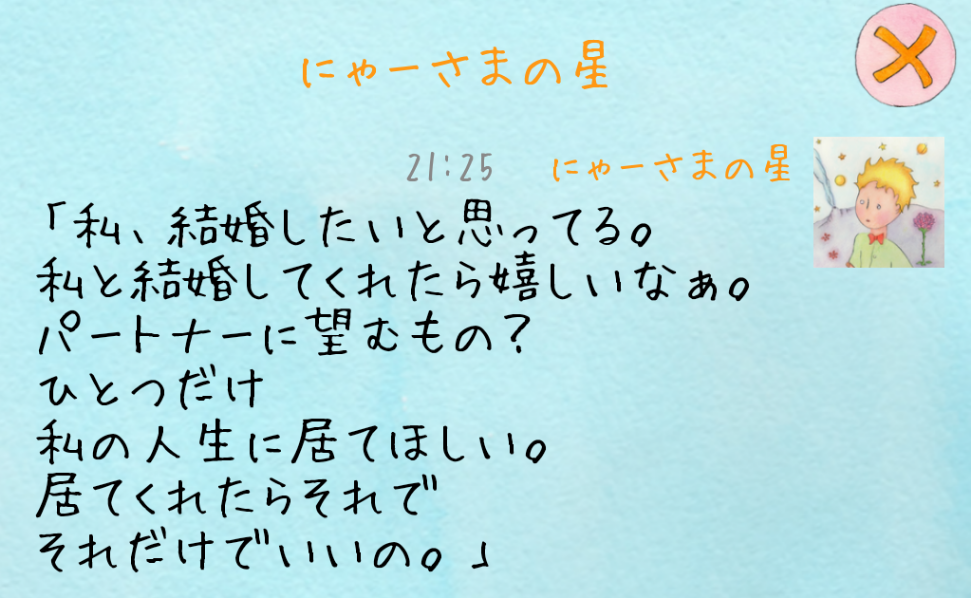 にゃーさまの星
21:25 にゃーさまの星
「私、結婚したいと思ってる。
私と結婚してくれたら嬉しいなぁ。
パートナーに望むもの？
ひとつだけ
私の人生に居てほしい。
居てくれたらそれで
それだけでいいの。」